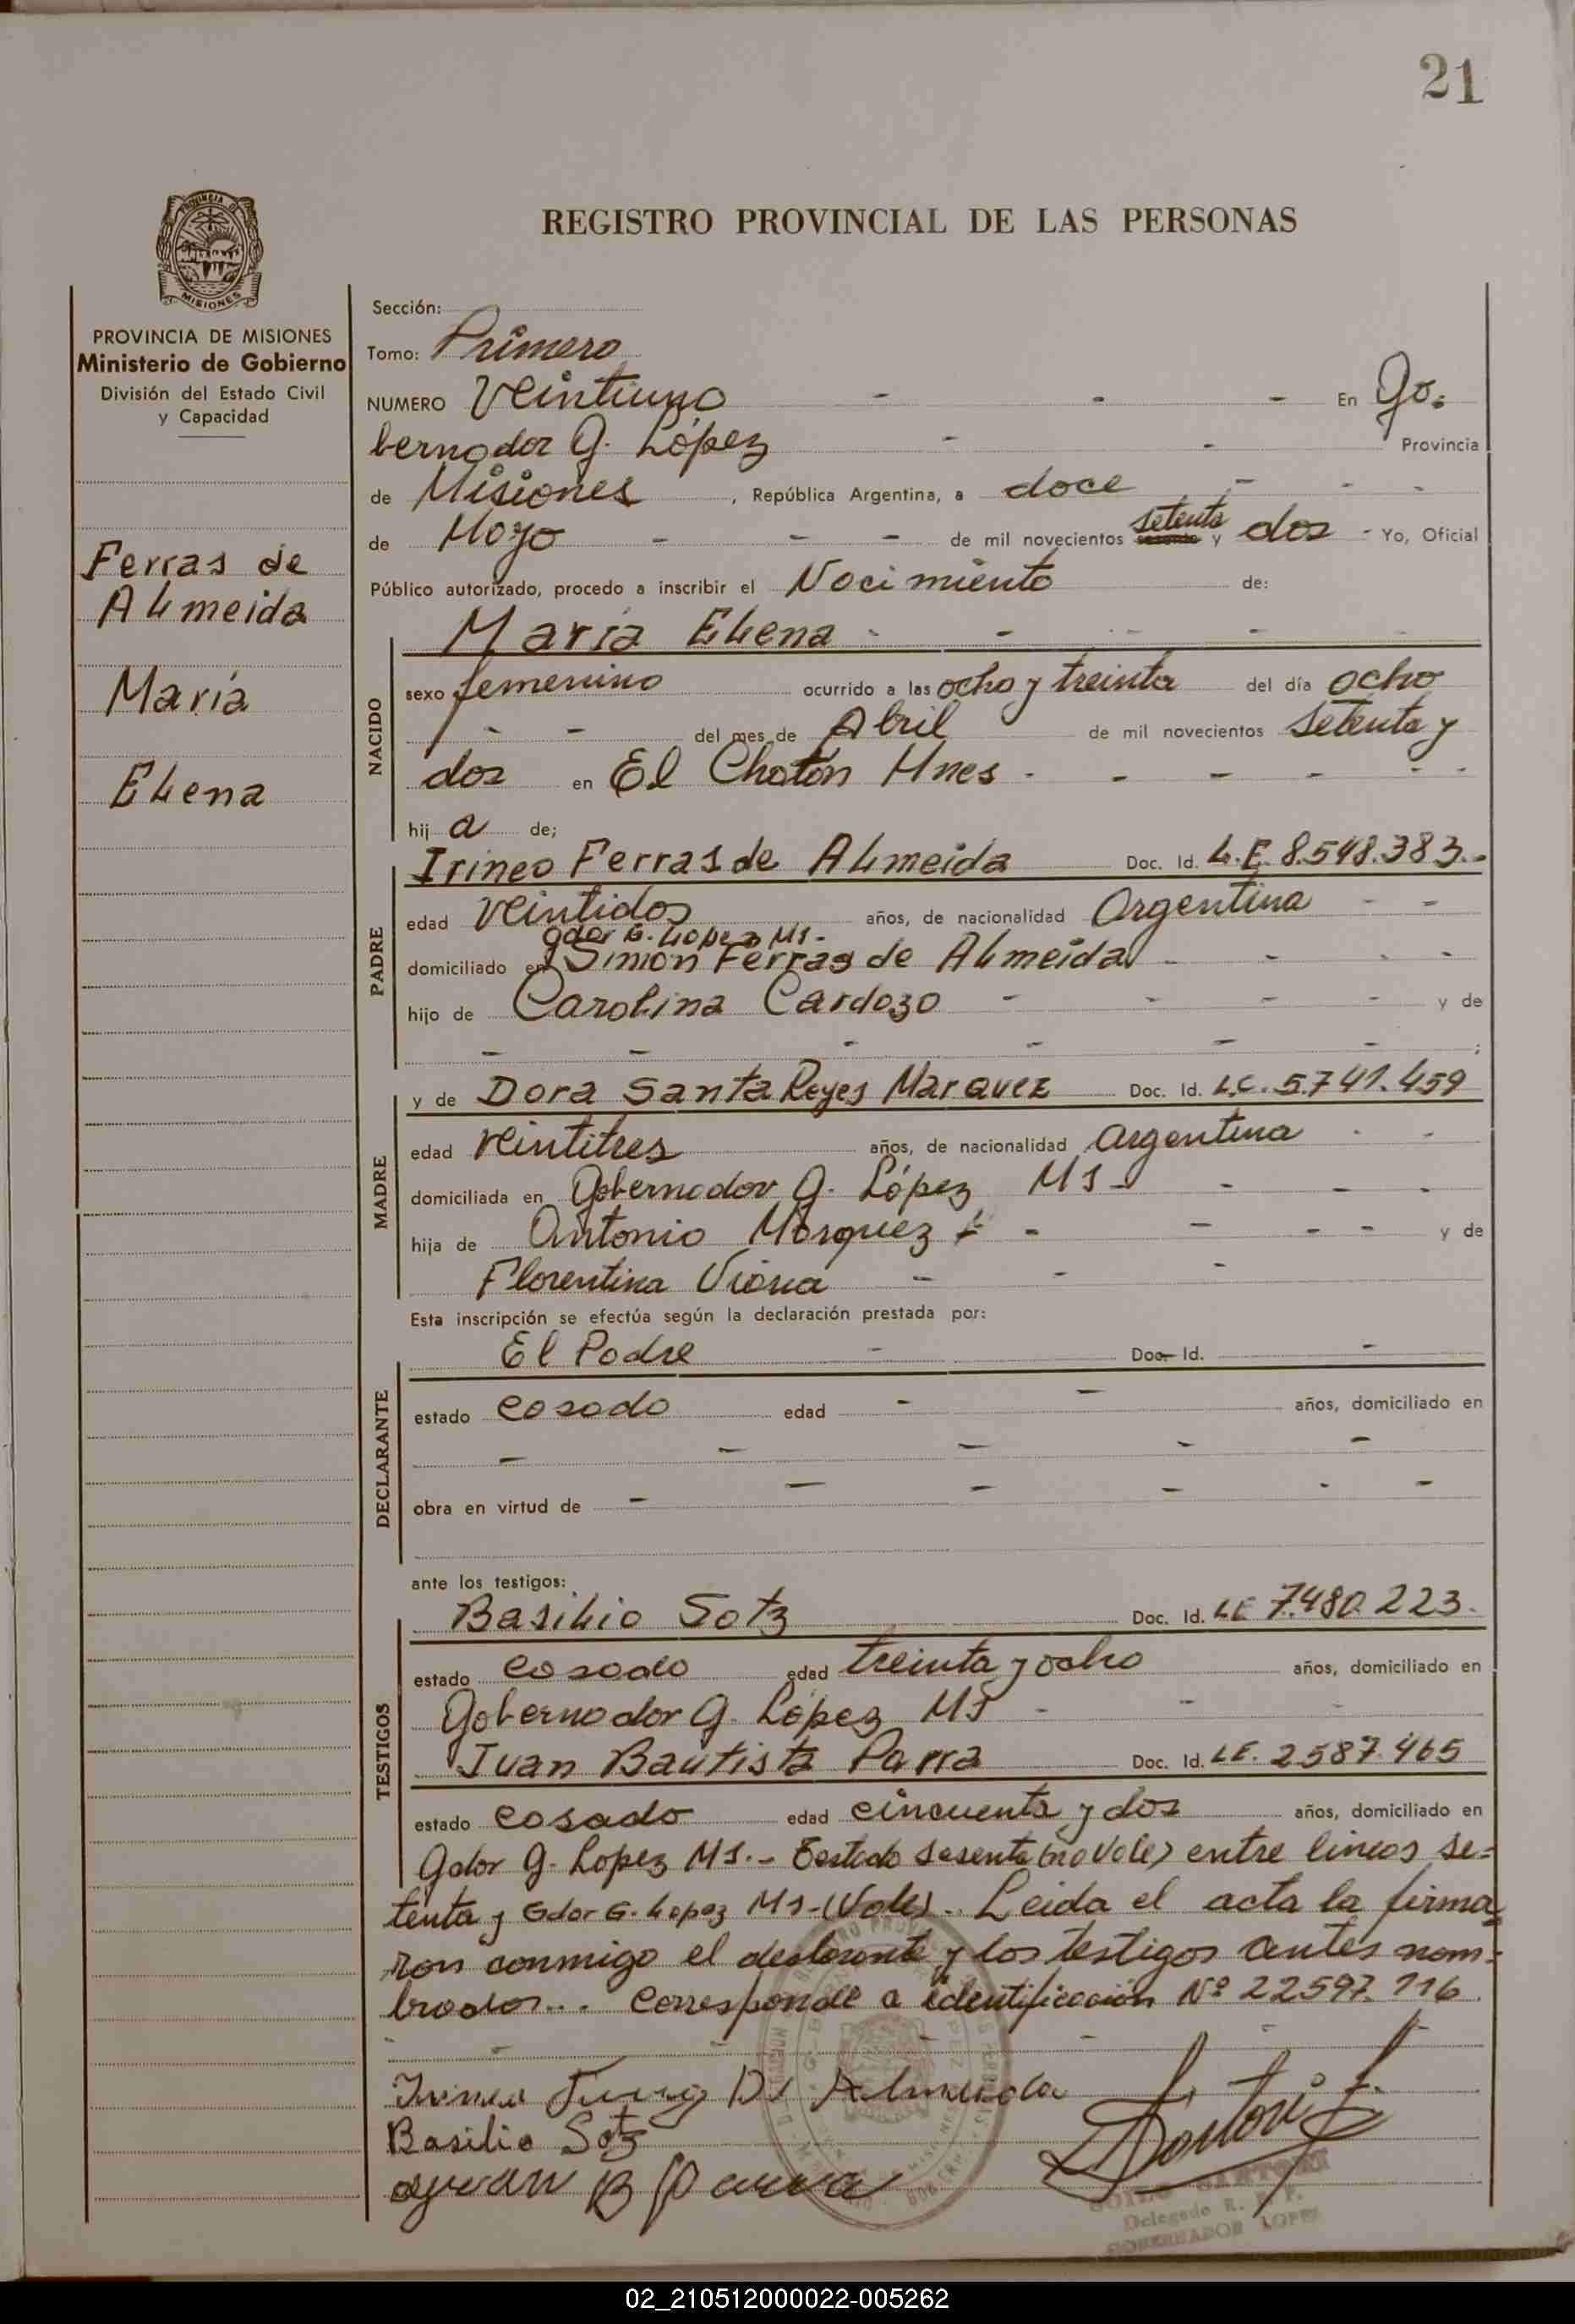 21
REGISTRO PROVINCIAL DE LAS PERSONAS
PROVINCIA DE MISIONES
Ministerio de Gobierno
División del Estado Civil
y Capacidad
Ferras de
Almeida
María
Elena
Sección:
Tomo: Primero
NUMERO Veintiuno - - - En Go-
bernador G. López - - Provincia
de Misiones, República Argentina, a doce - - -
de Mayo - - - de mil novecientos setenta y dos - Yo, Oficial
Público autorizado, procedo a inscribir el Nacimiento de:
NACIDO
María Elena - - - - -
sexo femenino ocurrido a las ocho y treinta del día ocho
- - del mes de Abril de mil novecientos setenta y
dos en El Chatón Mnes - - - - - -
hij a de;
PADRE
Irineo Ferras de Almeida Doc. Id. L.E. 8.548.383.-
edad veintidos años, de nacionalidad Argentina - -
Gdor G. Lopez Ms.-
domiciliado en Simon Ferras de Almeida - - - -
hijo de Carolina Cardozo - - - - y de
- - - - - - ;
MADRE
y de Dora Santa Reyes Marquez Doc. Id. L.C. 5.741.459
edad veintitres años, de nacionalidad argentina - -
domiciliada en Gobernador G. López Ms - - - -
hija de Antonio Marquez - - - - y de
Florentina - - -
Esta inscripción se efectúa según la declaración prestada por:
DECLARANTE
El Padre - Doc. Id. -
estado casado edad - - años, domiciliado en
- - - - -
obra en virtud de - - - - - -
ante los testigos:
TESTIGOS
Basilio Sotz Doc. Id. LE 7.480.223.
estado casado edad treinta y ocho años, domiciliado en
Gobernador G. López Ms - - -
Juan Bautista Parra Doc. Id. LE. 2587.465
estado casado edad cincuenta y dos años, domiciliado en
Gdor G. Lopez Ms.- Testado sesenta (no Vale) entre lineas se-
tenta y Gdor G. Lopez Ms-(Vale).. Leida el acta la firma-
ron conmigo el declarante y los testigos antes nom-
brados... Corresponde a identificación Nº 22597.116
Basilio Sotz
Juan B Parra
Sartori
SARTORI
Delegado R. P. P.
GOBERNADOR LOPEZ
02_210512000022-005262